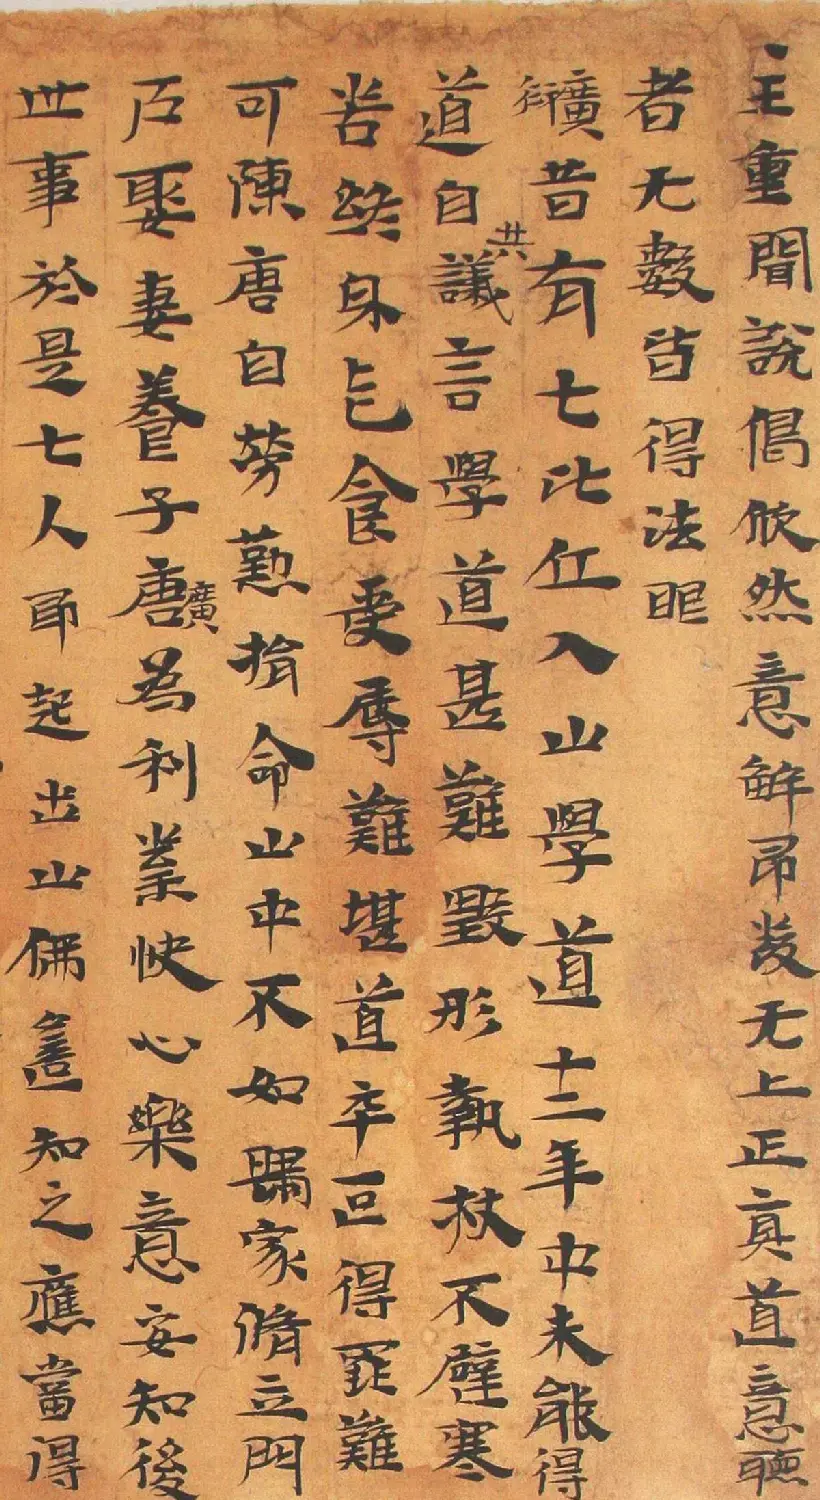 主重聞說偈欣然意解即發无上正真道意聽
者无數皆得法眼
廣昔有七比丘入山學道十二年中未能得
道自共議言學道甚難毀形執杖不避寒
苦終身乞食受辱難堪道卒叵得罪難
可陳唐自勞懃捐命山中不如歸家脩立門
戶娶妻養子唐廣為利業快心樂意安知後
世事於是七人即起出山佛遙知之應當得